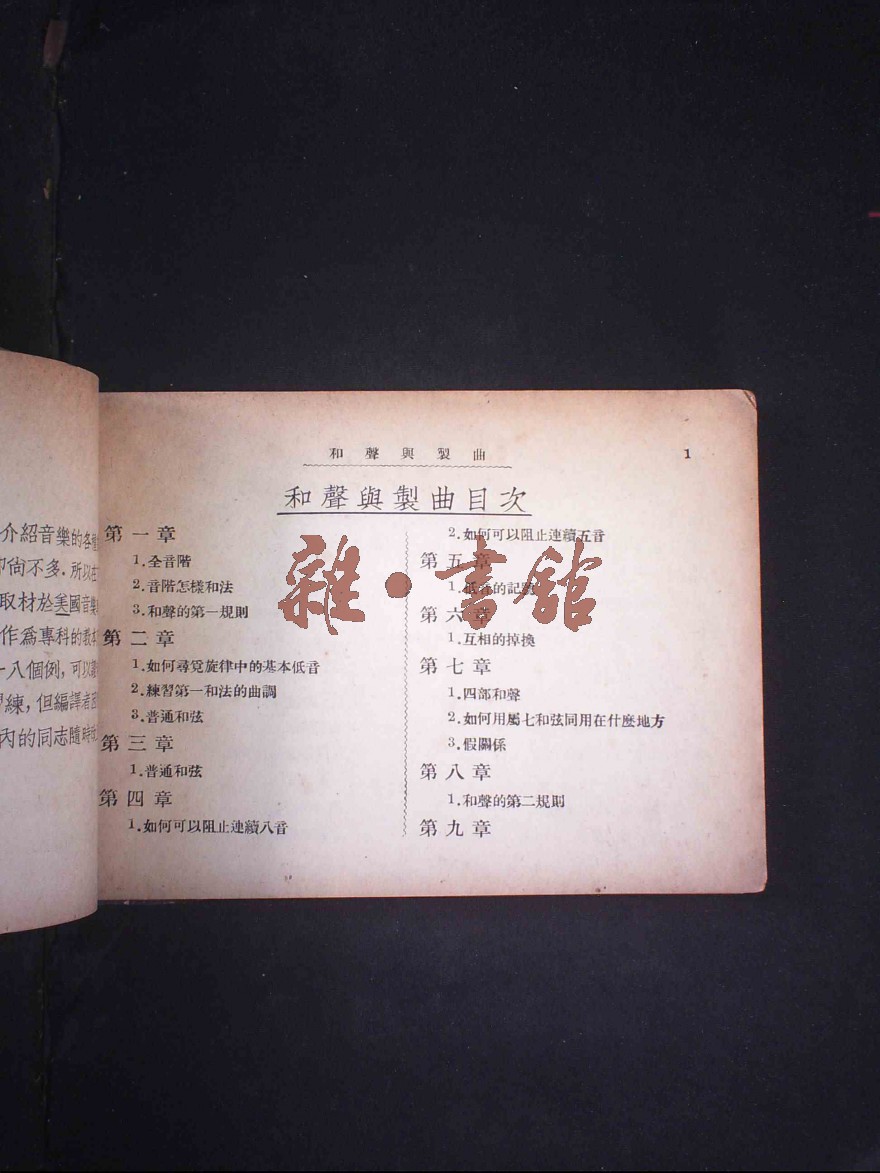 介紹音樂的各種
卽尙不多．所以在
取材於美國音樂
作爲專科的教本
十八個例，可以
練，但編譯者
內的同志隨時
和聲與製曲
1
和聲與製曲目次
第一章
1.全音階
2.音階怎樣和法
3.和聲的第一規則
第二章
1.如何尋覓旋律中的基本低音
2.練習第一和法的曲調
3.普通和弦
第三章
1.普通和弦
第四章
1.如何可以阻止連續八音
2.如何可以阻止連續五音
第五章
1.低音的記
第六章
1.互相的掉換
第七章
1.四部和聲
2.如何用屬七和弦同用在什麼地方
3.假關係
第八章
1.和聲的第二規則
第九章
雜·書館